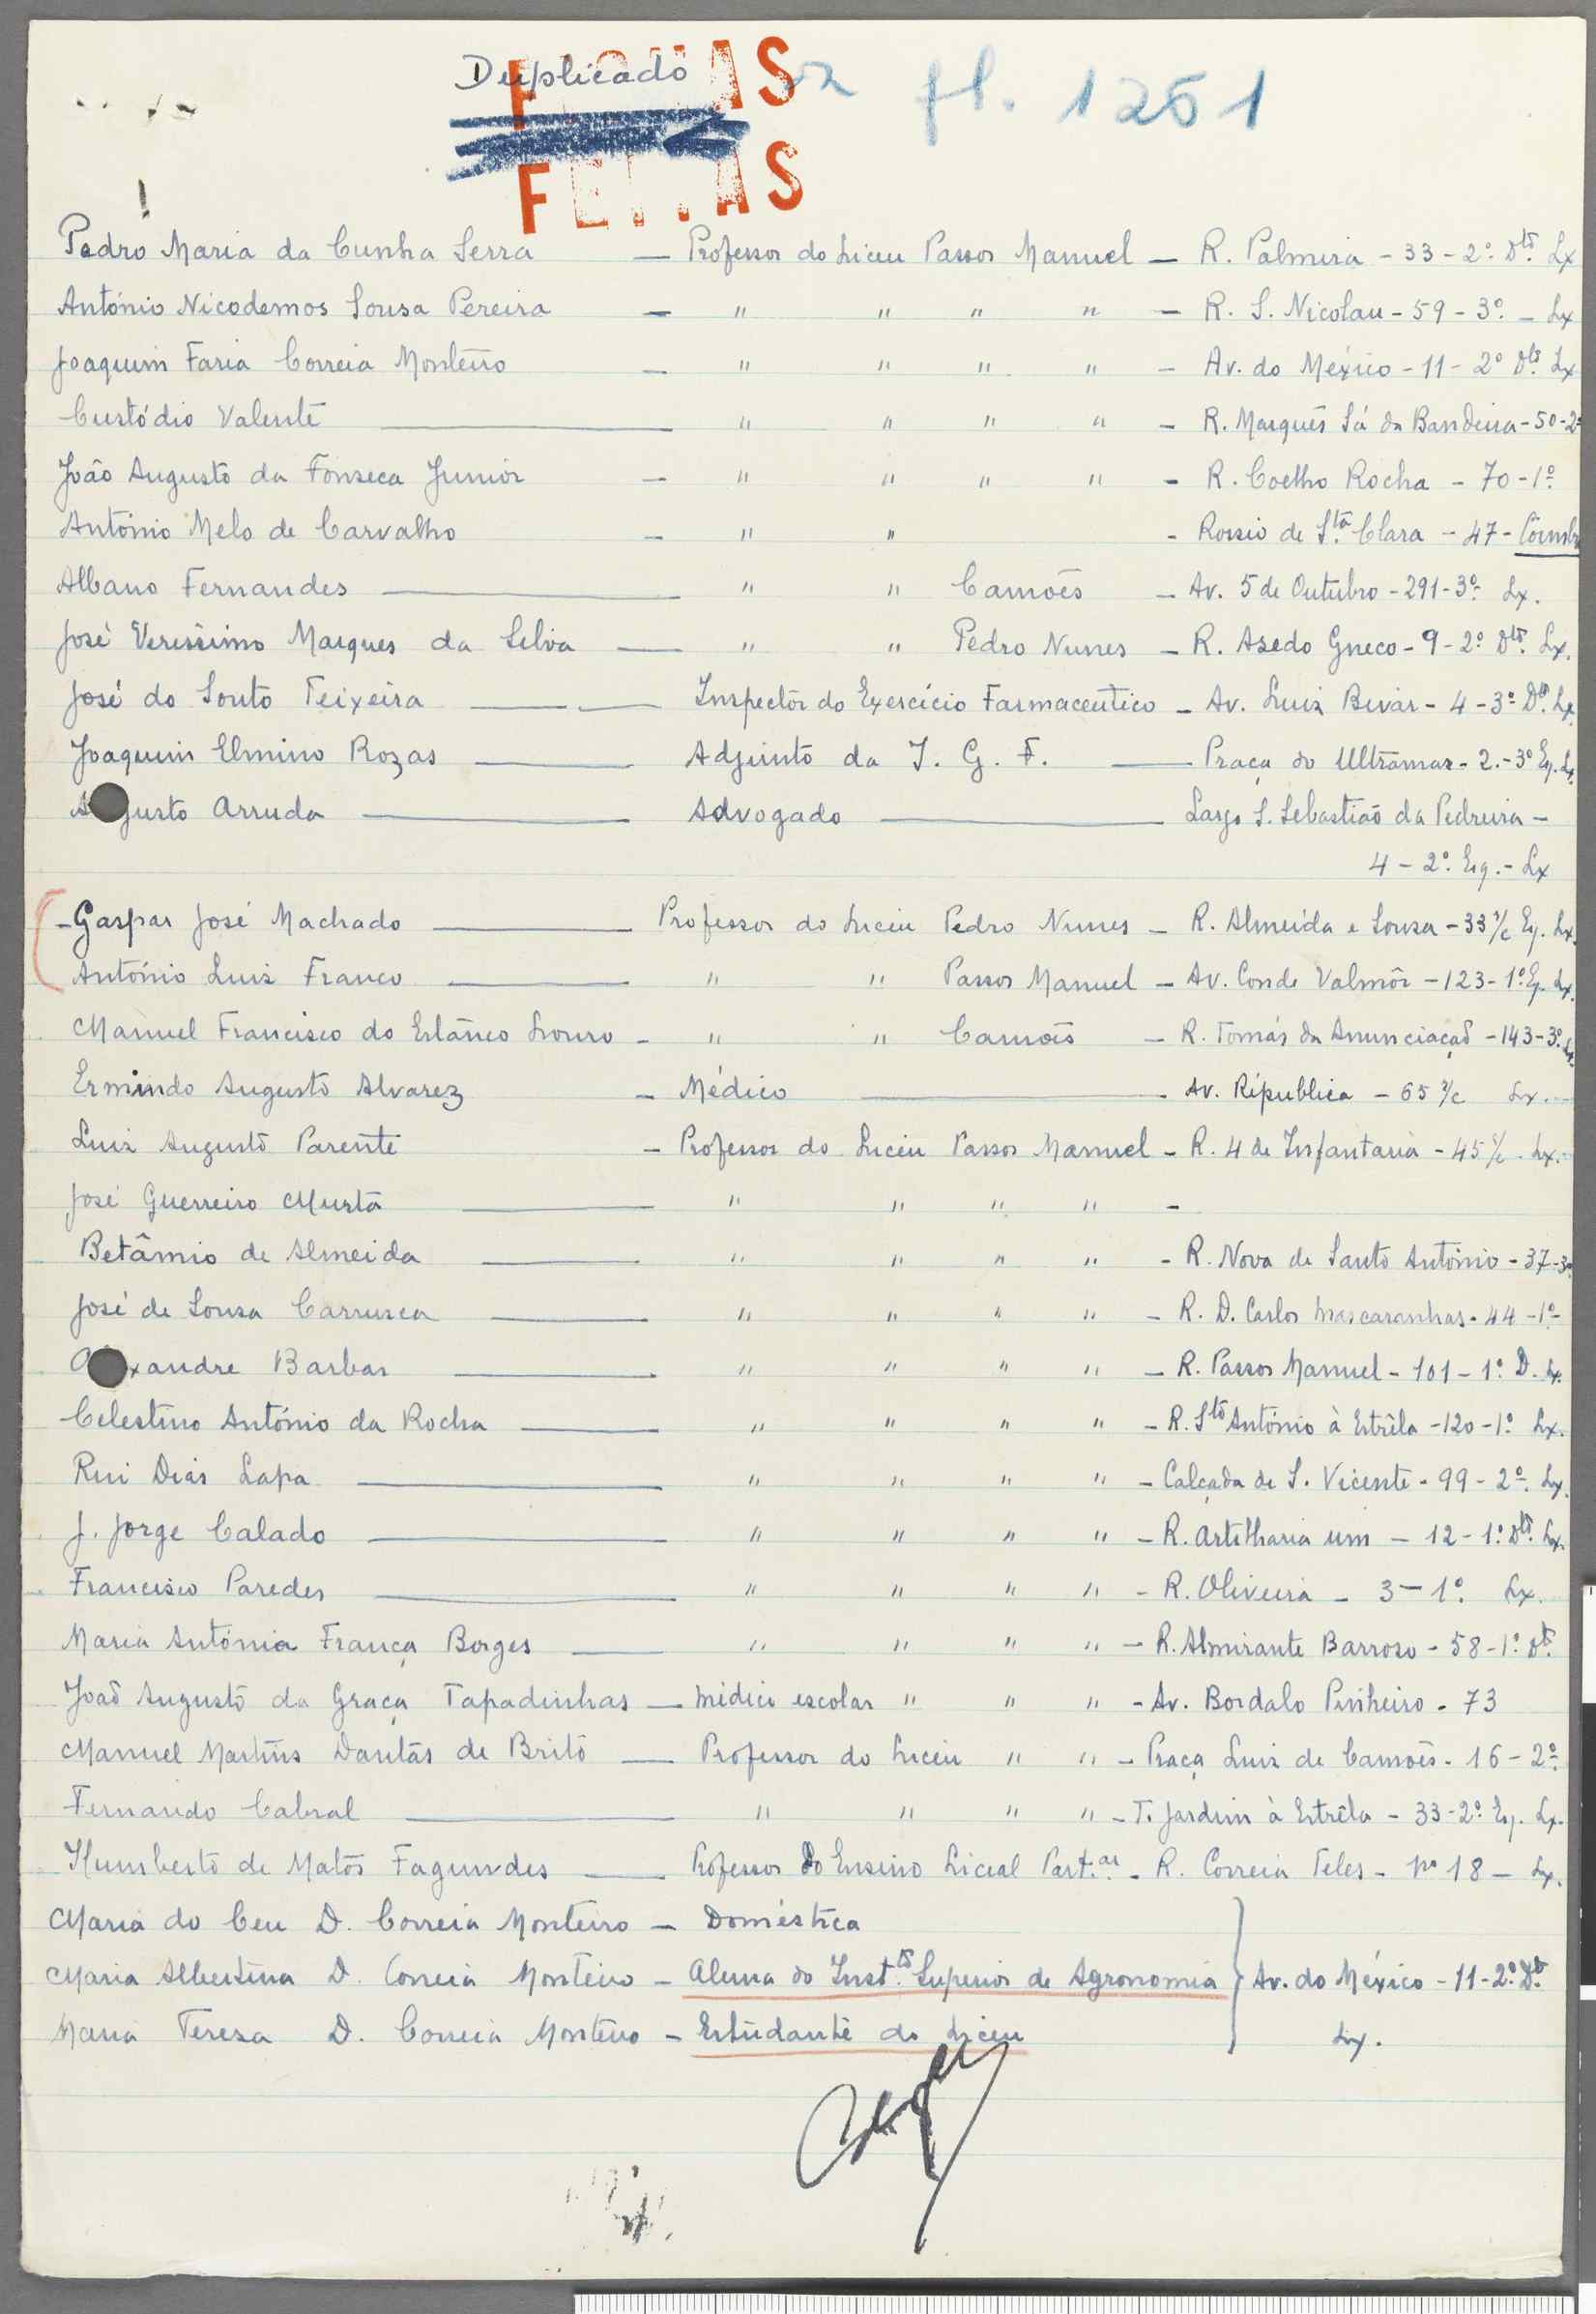 Duplicado
FEITAS
fl. 1261
Pedro Maria da Cunha Serra — Professor do Liceu Passos Manuel — R. Palmira - 33 - 2º Dtº. Lx
António Nicodemos Sousa Pereira — " " " " — R. S. Nicolau - 59 - 3º - Lx
Joaquim Faria Correia Monteiro — " " " " — Av. do México - 11 - 2º Dtº. Lx
Custódio Valente — " " " " — R. Marquês Sá da Bandeira - 50 - 2º
João Augusto da Fonseca Junior — " " " " — R. Coelho Rocha - 70 - 1º
António Melo de Carvalho — " " - Rossio de Stª. Clara - 47 - Coimbr
Albano Fernandes — " " Camões — Av. 5 de Outubro - 291 - 3º Lx.
José Veríssimo Marques da Silva — " " Pedro Nunes — R. Asedo Gneco - 9 - 2º Dtº. Lx.
José do Souto Teixeira — Inspector do Exercício Farmaceutico — Av. Luis Bivar - 4 - 3º Dtº. Lx
Joaquim Elmino Rozas — Adjunto da I. G. F. — Praça do Ultramar - 2. - 3º Eq. Lx.
A gusto Arruda — Advogado — Largo S. Sebastião da Pedreira -
4 - 2º. Esq. - Lx
- Gaspar José Machado — Professor do Liceu Pedro Nunes — R. Almeida e Sousa - 33 r/c Eq. Lx.
António Luis Franco — " " Passos Manuel — Av. Conde Valmôr - 123 - 1º Eq. Lx.
Manuel Francisco do Estanco Louro — " " Camões — R. Tomás da Anunciação - 143 - 3º. Lx.
Ermindo Augusto Alvarez — Médico — Av. Républica - 65 r/c Lx.
Luis Augusto Parente — Professor do Liceu Passos Manuel — R. 4 de Infantaria - 45 r/c. Lx.
José Guerreiro Murta — " " " " -
Betâmio de Almeida — " " " " - R. Nova de Santo António - 37 - 3º
José de Sousa Carrusca — " " " " - R. D. Carlos Mascaranhas - 44 - 1º
A xandre Barbas — " " " " — R. Passos Manuel - 101 - 1º D. Lx.
Celestino António da Rocha — " " " " — R. Stº António à Estrêla - 120 - 1º Lx.
Rui Dias Lapa — " " " " — Calçada de S. Vicente - 99 - 2º. Lx.
J. Jorge Calado — " " " " — R. Artilharia um - 12 - 1º. Dtº. Lx.
Francisco Paredes — " " " " - R. Oliveira - 3 - 1º. Lx.
Maria Antónia França Borges — " " " " — R. Almirante Barroso - 58 - 1º. Dtº.
João Augusto da Graça Tapadinhas — Médico escolar " " " - Av. Bordalo Pinheiro - 73
Manuel Martins Dantas de Brito — Professor do Liceu " " - Praça Luis de Camões - 16 - 2º
Fernando Cabral — " " " " — T. Jardim à Estrêla - 33 - 2º. Eq. Lx.
Humberto de Matos Fagundes — Professor do Ensino Liceal Part.ar - R. Correia Teles - nº 18 - Lx.
Maria do Ceu D. Correia Monteiro — Doméstica
Maria Albertina D. Correia Monteiro — Aluna do Inst.tº Superior de Agronomia } Av. do México - 11 - 2º. Dtº
Maria Teresa D. Correia Monteiro — Estudante do Liceu Lx.